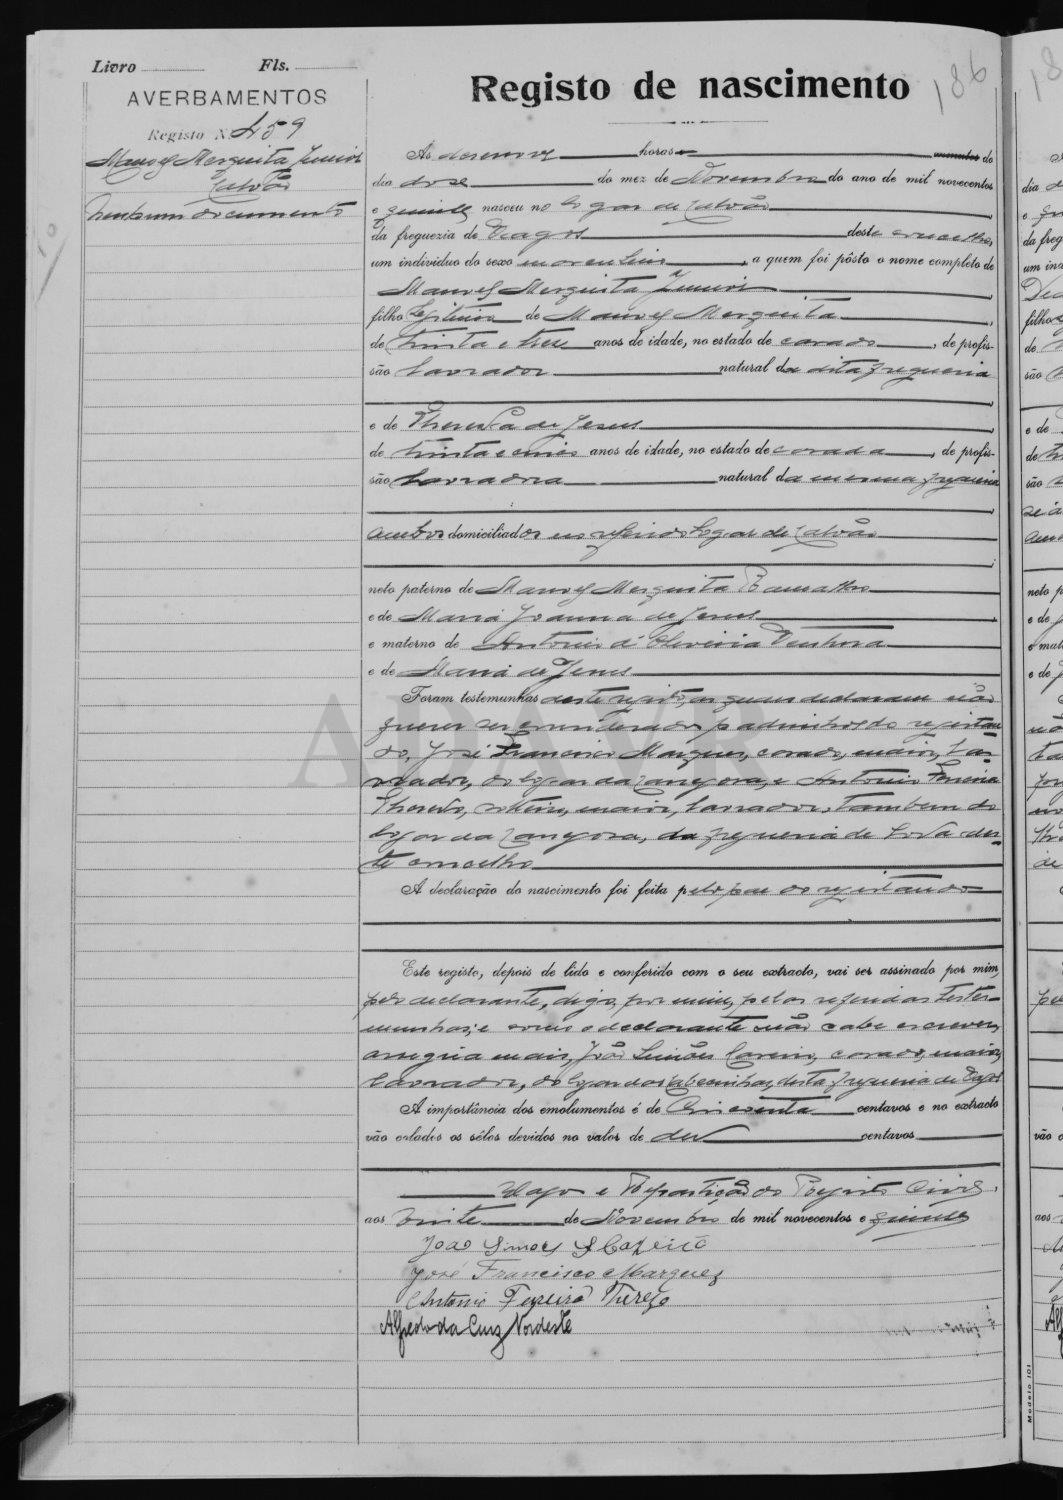 Livro Fls.
AVERBAMENTOS
Registo N.º 459
Manoel Mesquita Junior
Calvão
Nenhum documento
Registo de nascimento
186
Ás desenove horas minutos do
dia dose do mez de Novembro do ano de mil novecentos
e quinze nasceu no logar de Calvão
da freguezia de Vagos deste concelho,
um individuo do sexo masculino, a quem foi pôsto o nome completo de
Manoel Mesquita Junior
filho legitimo de Manoel Mesquita,
de trinta e tres anos de idade, no estado de casado, de profis-
são lavrador natural da dita freguesia
e de Theresa de Jesus
de trinta e cinco anos de idade, no estado de casada, de profis-
são lavradora natural da mesma freguesia
ambos domiciliados no referido logar de Calvão
neto paterno de Manoel Mesquita Ramalho
e de Maria Joanna de Jesus
e materno de Antonio d'Oliveira
e de Maria de Jesus
Foram testemunhas deste registo, os quaes declararam não
querer ser considerados padrinhos do registan-
do, José Francisco Marques, casado, maior, la-
vrador, do logar da e Antonio Ferreira
Thereso, solteiro, maior, lavrador, tambem do
logar da da freguesia de Soza des-
te concelho
A declaração do nascimento foi feita pelo pae do registando
Este registo, depois de lido e conferido com o seu extracto, vai ser assinado por mim,
pelo declarante, digo, por mim, pelas referidas teste-
munhas, e como o declarante não sabe escrever,
assigna mais, João Simões casado, maior,
lavrador, do logar desta freguesia de Vagos
A importância dos emolumentos é de Cincoenta centavos e no extracto
vão colados os sêlos devidos no valor de dez centavos
Vagos e Repartição do Registo Civil,
aos vinte de Novembro de mil novecentos e quinze
João Simoes
José Francisco Marques
Antonio Ferreira Thereso
Alfredo da Cruz Nordeste
Modelo 101